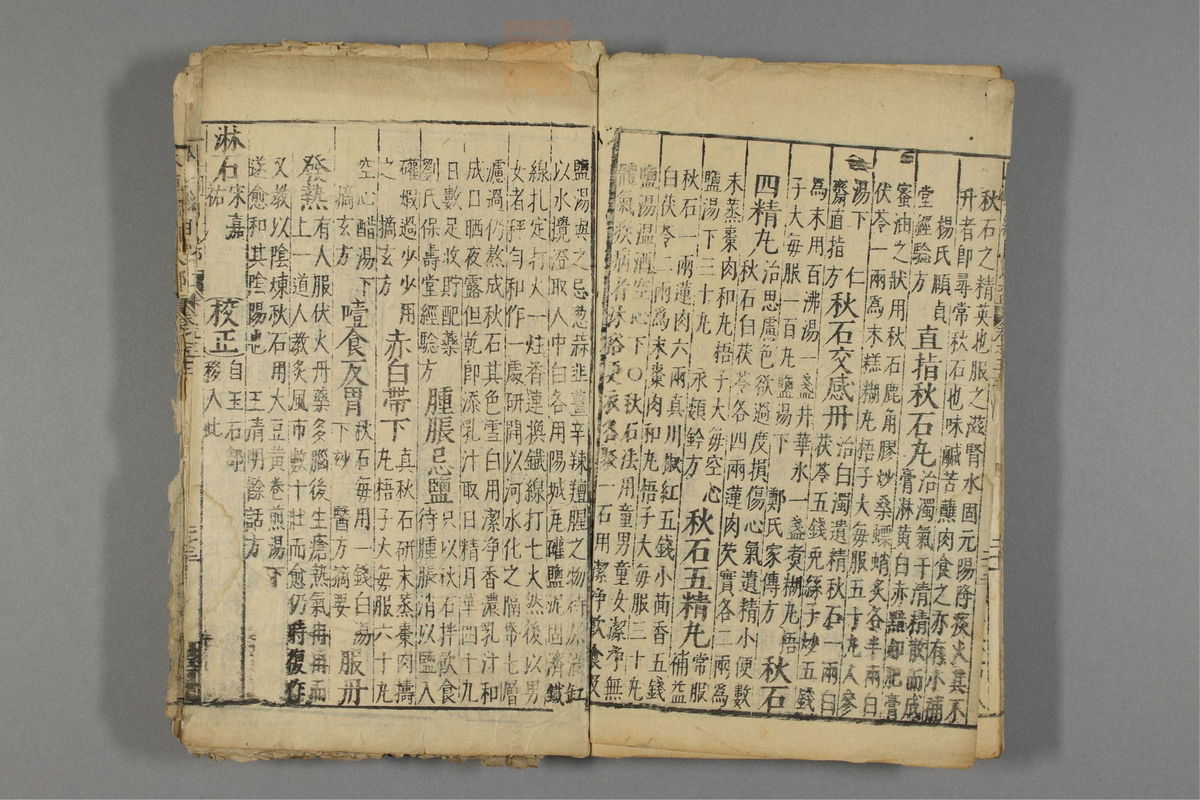 秋石之精英也服之滋腎水固元陽降痰火其不
升者即尋常秋石也味鹹苦蘸肉食之亦有小補
楊氏頤貞
堂經驗方
直指秋石丸
治濁氣干清精散而成
膏淋黃白赤黯如肥膏
蜜油之狀用秋石鹿角膠炒桑螵蛸炙各半兩白
伏苓一兩為末糕糊丸梧子大每服五十丸人參
湯下
仁
齋直指方
秋石交感丹
治白濁遺精秋石一兩白
茯苓五錢兎絲子炒五錢
為末用百沸湯一盞井華水一盞煮糊丸梧
子大每服一百丸鹽湯下
鄭氏家傳方
秋石
四精丸
治思慮色欲過度損傷心氣遺精小便數
秋石白茯苓各四兩蓮肉芡實各二兩為
末蒸棗肉和丸梧子大每空心
鹽湯下三十丸
永類鈐方
秋石五精丸
常服
補益
秋石一兩蓮肉六兩真川椒紅五錢小茴香五錢
白茯苓二兩為末棗肉和丸梧子大每服三十丸
鹽湯溫酒空心下○秋石法用童男童女潔淨無
體氣疾病者沐浴更衣各聚一石用潔淨飲食及
鹽湯與之忌葱蒜韭薑辛辣羶腥之物待尿滿缸
以水攪澄取人中白各用陽城瓦礶鹽泥固濟鐵
線扎定打火一炷香連換鐵線打七火然後以男
女者秤勻和作一處研開以河水化之隔帋七層
濾過仍熬成秋石其色雪白用潔淨香濃乳汁和
成日晒夜露但乾即添乳汁取日精月華四十九
日數足收貯配藥
劉氏保壽堂經驗方
腫脹忌鹽
只以秋石拌飲食
待腫脹消以鹽入
礶煆過少少用
之
摘玄方
赤白帶下
真秋石研末蒸棗肉擣
丸梧子大每服六十丸
空心醋湯下
摘玄方
噎食反胃
秋石每用一錢白湯
下妙
醫方摘要
服丹
發熱
有人服伏火丹藥多腦後生瘡熱氣冉冉而
上一道人教炙風市數十壯而愈仍時復作
又教以陰煉秋石用大豆黃卷煎湯下
遂愈和其陰陽也
王清明餘話方
淋石
宋嘉
祐
校正
自玉石部
移入此